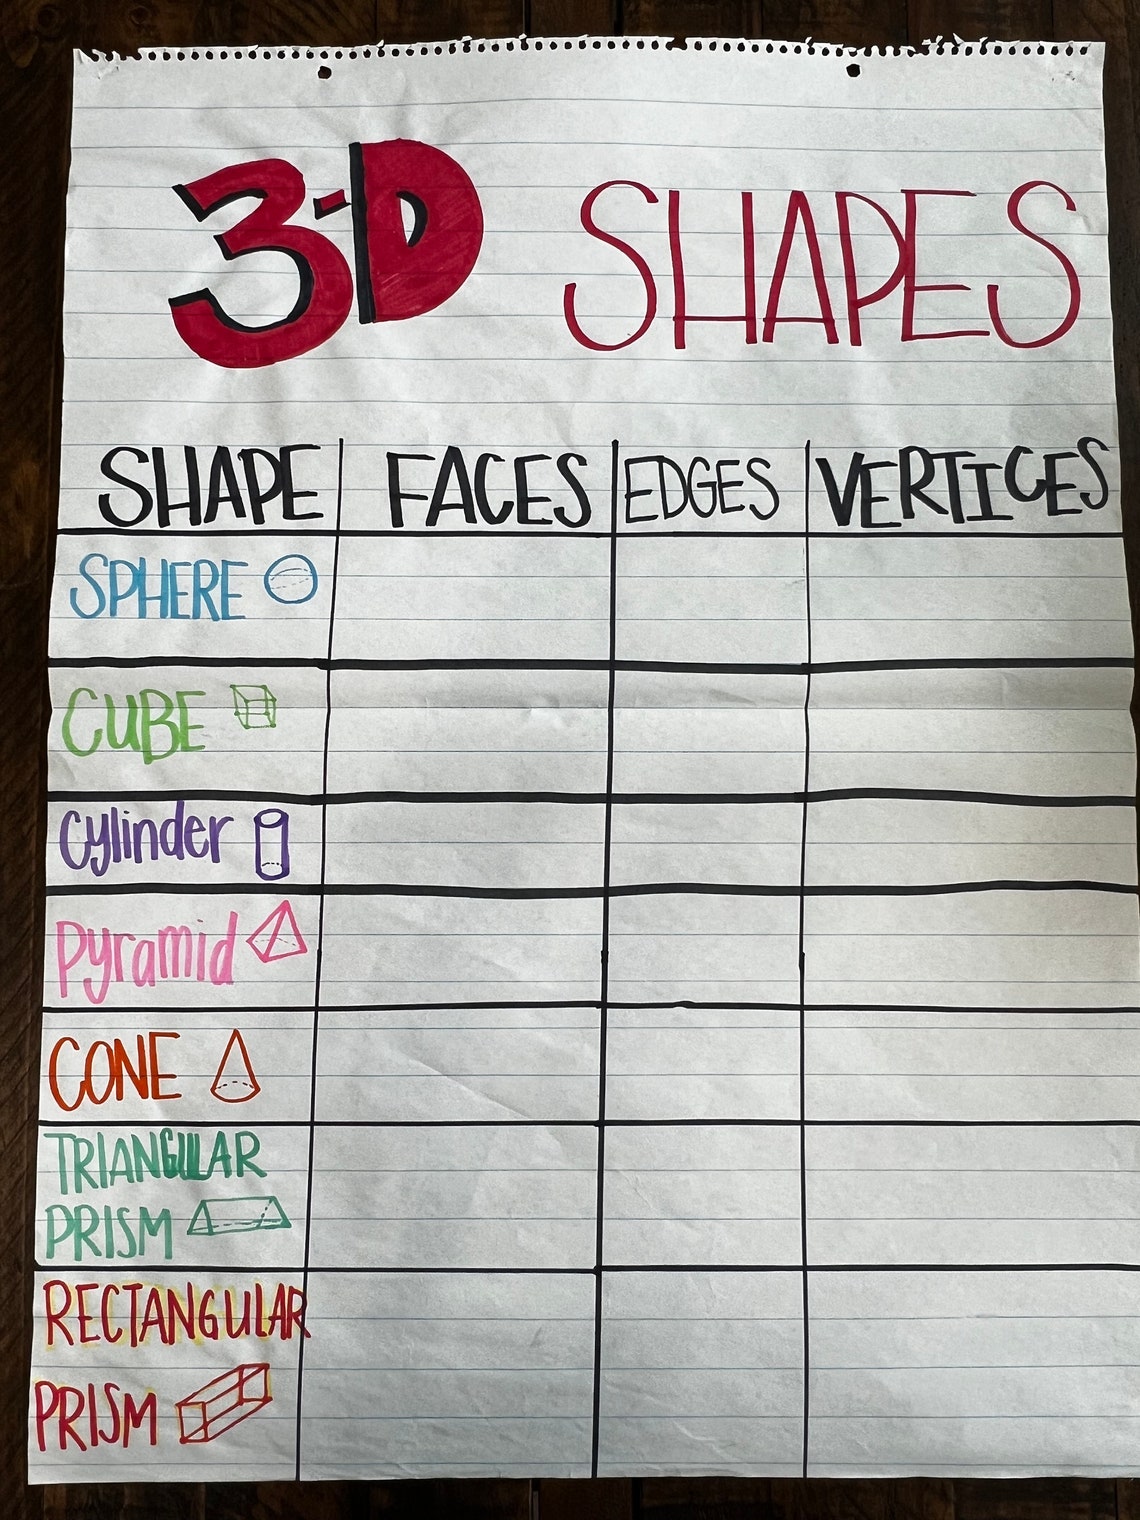 3-D SHAPES
SHAPE FACES EDGES VERTICES
SPHERE
CUBE
Cylinder
Pyramid
CONE
TRIANGULAR
PRISM
RECTANGULAR
PRISM